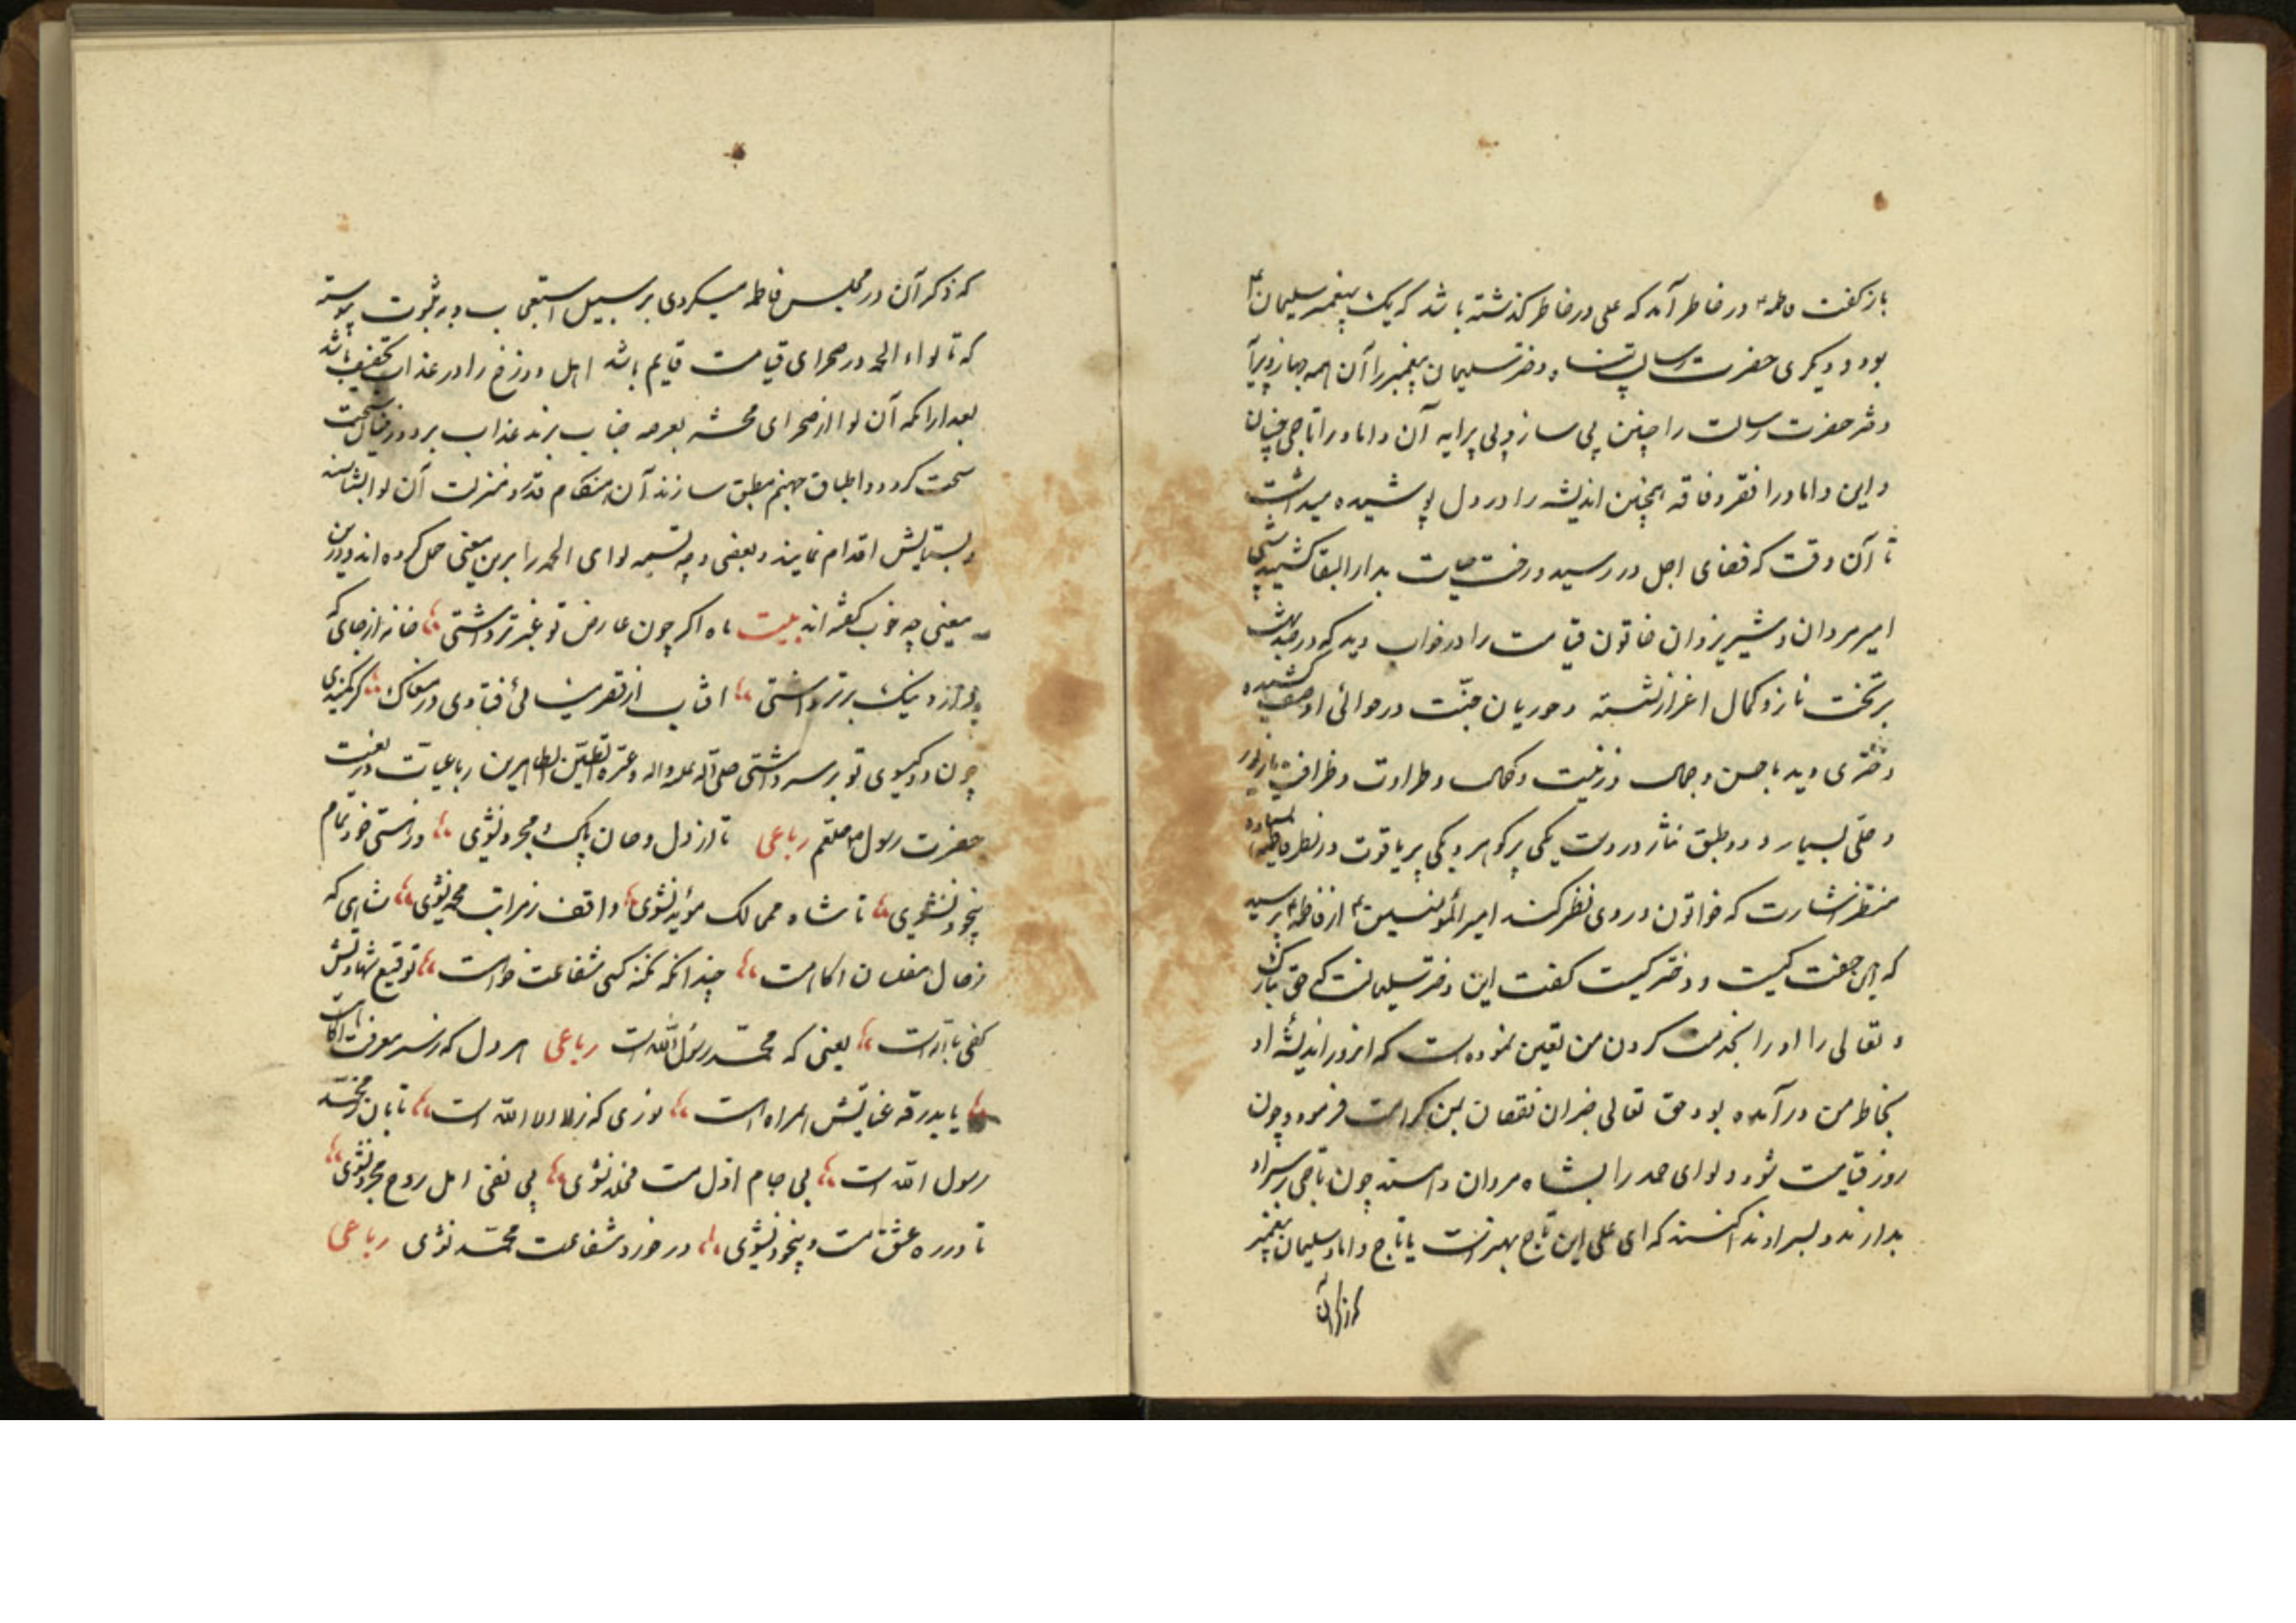 باز گفت فاطمه در خاطر آمد که علی در خاطر گذشته باشد که یک پیغمبر سلیمان
بود و دیگری حضرت رسالت پناه دختر سلیمان پیغمبر را آن همه جهاز و
دختر حضرت رسالت را چنین بی ساز و بی پرایه آن داماد را تاجی چنان
و این داماد را فقر و فاقه همچنین اندیشه را در دل پوشیده میداشت
تا آن وقت که قضای اجل در رسید و رخت حیات بدار البقا کشید
امیر مردان و شیر یزدان خاتون قیامت را در خواب دید که در بهشت
بر تخت ناز و کمال اعزاز نشسته و حوریان جنت در حوالی او صف کشیده
دختری دید با حسن و جمال و زینت و کمال و طراوت و ظرافت با زیور
و حلی بسیار و دو طبق نثار در دست یکی پر گوهر و یکی پر یاقوت در نظر فاطمه ایستاده
منتظر اشارت که خواتون در وی نظر کند امیر المؤمنین از فاطمه پرسید
که این جفت کیست و دختر کیست گفت این دختر سلیمانست که حق تبارک
و تعالی را او را بخدمت کردن من تعین نموده است که انروز اندیشه او
بخاطر من در آمده بود حق تعالی جبران نقصان بمن کرامت فرمود و چون
روز قیامت شود و لوای حمد را بشاه مردان دهند چون تاجی بر سر او
بدارند و بسر او ندا کنند که ای علی این تاج بهترست یا تاج داماد سلیمان پیغمبر
که ذکر آن
که ذکر آن در مجلس فاطمه میکردی بر سبیل استعجاب و به ثبوت پیوسته
که تا لواء الحمد در صحرای قیامت قایم باشد اهل دوزخ را در عذاب تخفیف باشد
بعد ازانکه آن لوا از صحرای محشر بعرصه جناب برند عذاب بر دوزخیان سخت
سخت گردد و اطباق جهنم مطبق سازند آن هنگام قدر و منزلت آن لوا بشناسند
و بستایش اقدام نمایند و بعضی وجه تسمیه لوای الحمد را برین معنی حمل کرده اند و درین
معنی چه خوب گفته اند بیت ماه اگر چون عارض تو عنبر تر داشتی خانه از جای که
دارد نیک برتر داشتی افتاب از قصر مینائی فتادی در مغاک گر کمندی
چون دو گیسوی تو بر سر داشتی صلی الله علیه واله وعترته الطیبین الطاهرین رباعیات در نعت
حضرت رسول صلعم رباعی تا از دل و جان پاک و مجرد نشوی و ز هستی خود تمام
بیخود نشوی تا شاه ممالک مؤید نشوی واقف ز مراتب محمد نشوی شاهی که
ز حال مفلسان اگاهست چندانکه گنه کنی شفاعت خواهست توقیع شهادتش
کفی باللهست یعنی که محمد رسول الله است رباعی هر دل که ز سر معرفت اگاهست
با بدرقه عنایتش همراه است نوری که ز لا اله الا الله است تابان ز محمد
رسول الله است بی جام ازل مست مخلد نشوی بی نفی اهل روح مجرد نشوی
تا در ره عشق مست و بیخود نشوی در خورد شفاعت محمد نشوی رباعی